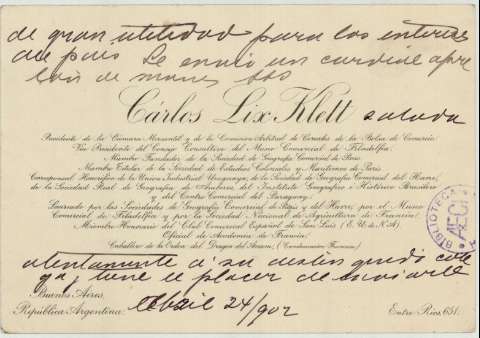 de gran utilidad para los intereses
del pais Le envio un cordial apre
ton de manos
Cárlos Lix Klett saluda
Presidente de la Cámara Mercantil y de la Comision Arbitral de Cereales de la Bolsa de Comercio
Vice Presidente del Consejo Consultivo del Museo Comercial de Filadelfia
Miembro Fundador de la Sociedad de Geografia Comercial de Paris
Miembro Titular de la Sociedad de Estudios Coloniales y Maritimos de Paris
Corresponsal Honorifico de la Union Industrial Uruguaya, de la Sociedad de Geografia Comercial del Havre,
de la Sociedad Real de Geografia de Amberes, del Instituto Geográfico e Histórico Brasilero
y del Centro Comercial del Paraguay
Laureado por las Sociedades de Geografia Comercial de Paris y del Havre, por el Museo
Comercial de Filadelfia y por la Sociedad Nacional de Agricultura de Francia
Miembro Honorario del Club Comercial Español de San Luis (E.U. de N.A.)
Oficial de Academia de Francia
Caballero de la Orden del Dragon del Annam, (Condecoracion Francesa)
BIBLIOTECA
atentamente á su distinguido cole
ga, tiene el placer de enviarle
Buenos Aires,
República Argentina: Abril 24/902 Entre Rios, 651.